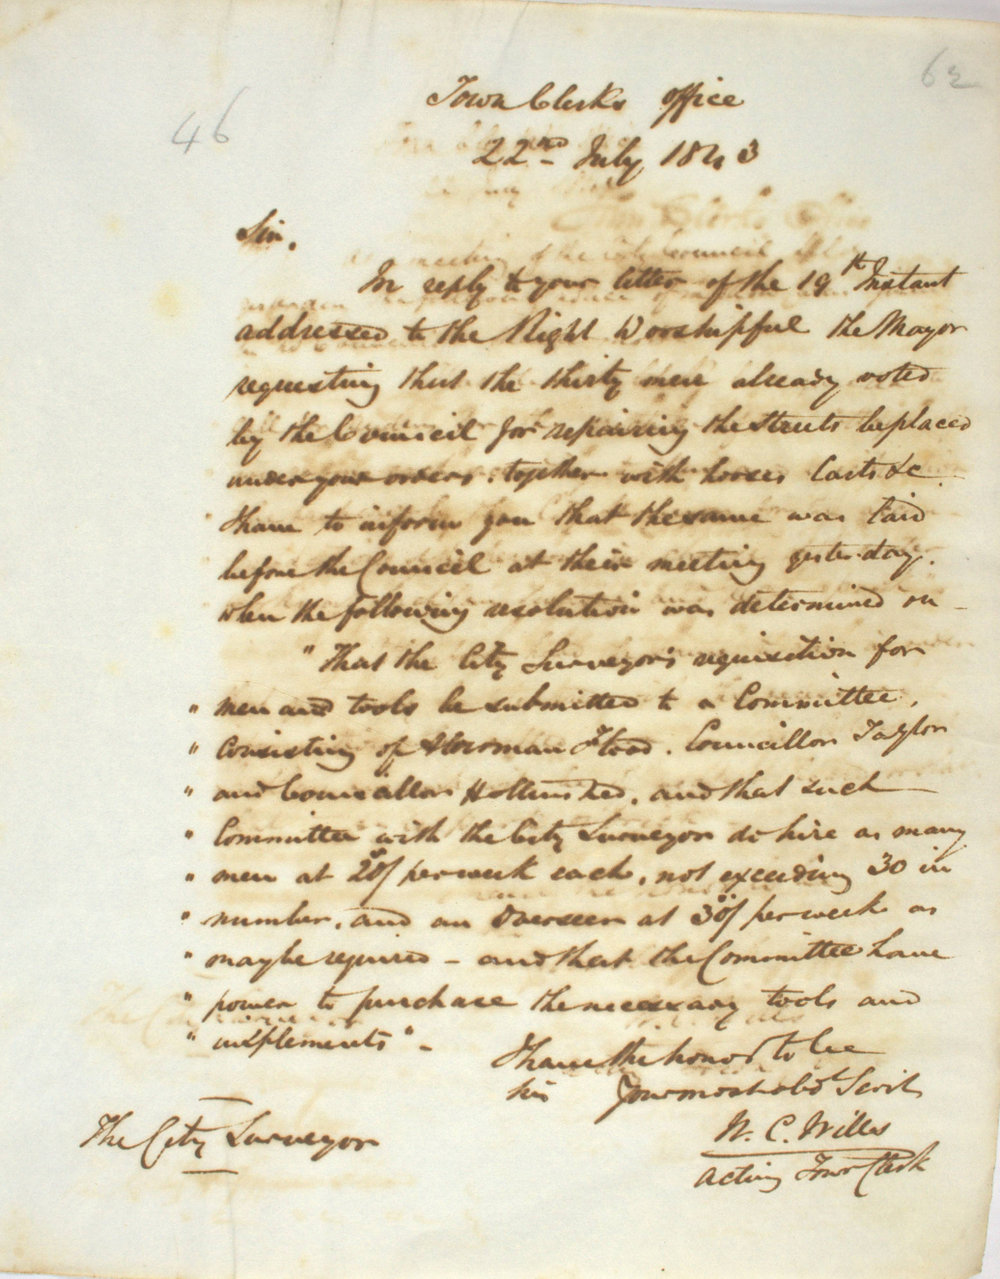 46
62
Town Clerks office
22nd July 1843
Sir,
In reply to your letter of the 19th Instant
addressed to the Right Worshipful the Mayor
requesting that the thirty men already voted
by the Council for repairing the streets be placed
under your orders, together with horses Carts &c.
I have to inform you that the same was laid
before the Council at their meeting yesterday.
when the following resolution was determined on –
"That the City Surveyor's requisition for
" men and tools be submitted to a Committee,
" Consisting of Alderman Flood. Councillor Taylor
" and Councillor Hollinshed, and that such
" Committee with the City Surveyor do hire as many
" men at 20s/ per week each, not exceeding 30 in
" number, and an Overseer at 30s/ per week as
" may be required – and that the Committee have
" power to purchase the necessary tools and
" implements" –
I have the honor to be
Sir Your most obdt Servt
W. C. Wills
Acting Town Clerk
The City Surveyor